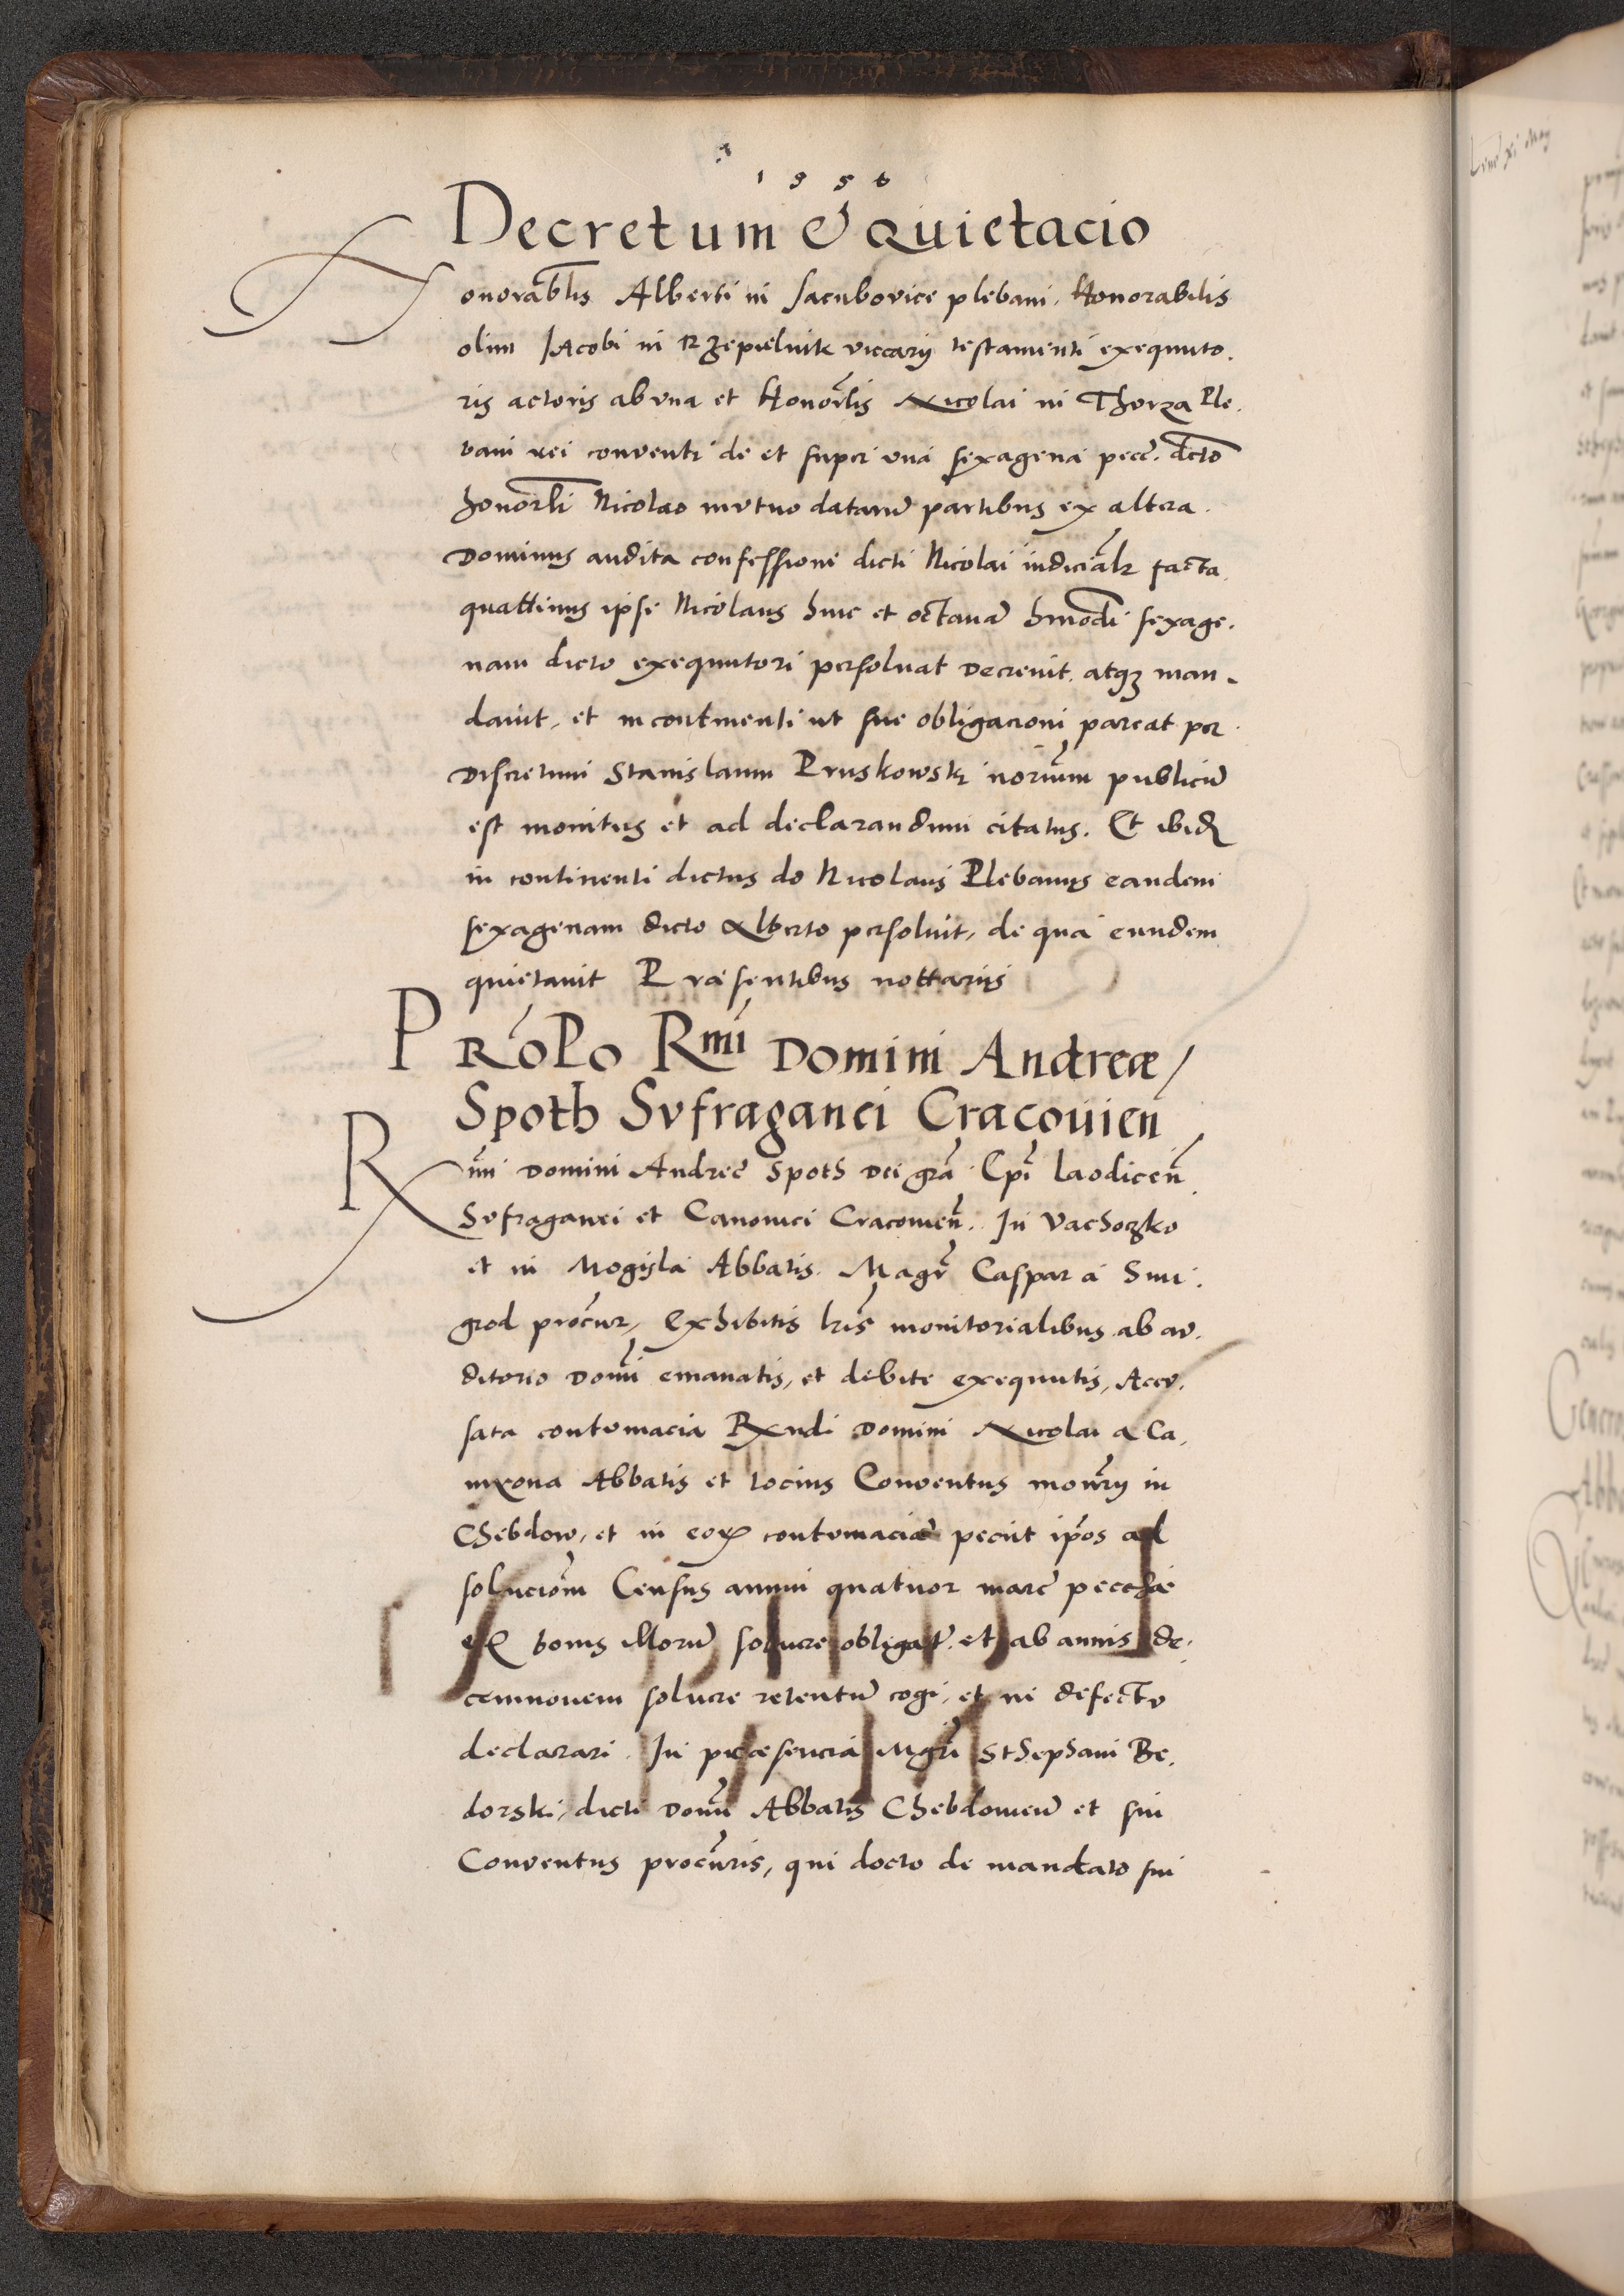 1556
Decretum & Quietacio
Honorablis Alberti in Jacubovice plebani. Honorabilis
olim Jacobi in Rzepielnik viccarij testamenti exequuto.
ris actoris ab vna et Honorlis Nicolai in Thorza Ple.
bani rei conventi de et super vna sexagena pecc. dcto
honorli Nicolao mutuo datarum partibus ex altera.
Dominus audita confessione dicti Nicolai iudicialr facta
quattinus ipse Nicolaus hinc et octavam hmodi sexage.
nam dicto exequutori persolvat Decrevit. atq3 man-
davit, et in continenti ut sue obligacioni pareat per
Discretum Stanislaum Pruskowski norium publicum
est monitus et ad declarandum citatus. Et ibid
in continenti dictus do Nicolaus Plebanus eandem
sexagenam dicto Alberto persolvit, de qua eundem
quietavit Præsentibus nottarijs
Pro Po Rmi Domini Andreæ
Spoth Svfraganei Cracovien
Rmi Domini Andree Spoth Dei gra Epi Laodicen
Svfraganei et Canonici Cracovien. In Vachoczko
et in Mogila Abbatis. Magr Caspar a Smi.
grod procur, Exhibitis lris monitorialibus ab av.
ditorio Domi emanatis, et debite exequutis, Accv.
sata contvmacia Rxndi Domini Nicolai a Ca.
Abbatis et tocius Conventus monrij in
Chebdow, et in eor contvmaciam peciit ipos ad
soluciom Census annui quatuor marc peccræ
ex bonis illorum soluere obligat. et ab annis de.
cemnovem soluere retentum cogi, et in defectv
declarari. In præsencia Mgri Sthephani Be.
dorski, dicti Domi Abbatis Chebdovien et sui
Conventus procuris, qui docto de mandato sui